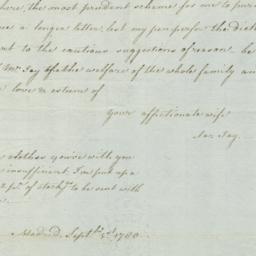 here, the most prudent scheme for me to pursu
a longer letter, but my pen prefer the dict
nt to the cautious suggestions of reason be
Mr. Jay & the welfare of the whole family an
love & esteem of
Your affectionate wife
Sa: Jay.
clothes you've with you
insufficient. I've put up a
pr. of stockgs. to be sent with
Madrid, Septbr. 1780